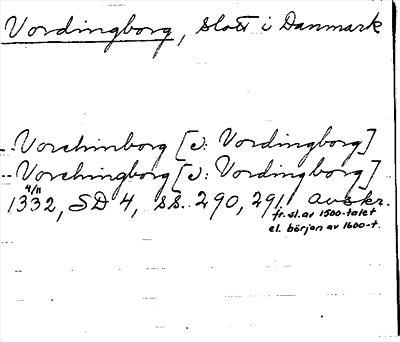 Vordingborg, slott i Danmark
-- Vorchinborg [ɔ: Vordingborg]
-- Vorchingborg [ɔ: Vordingborg]
4/11
1332, SD 4, ss. 290, 291. avskr.
fr. sl. av 1500-talet
el. början av 1600-t.